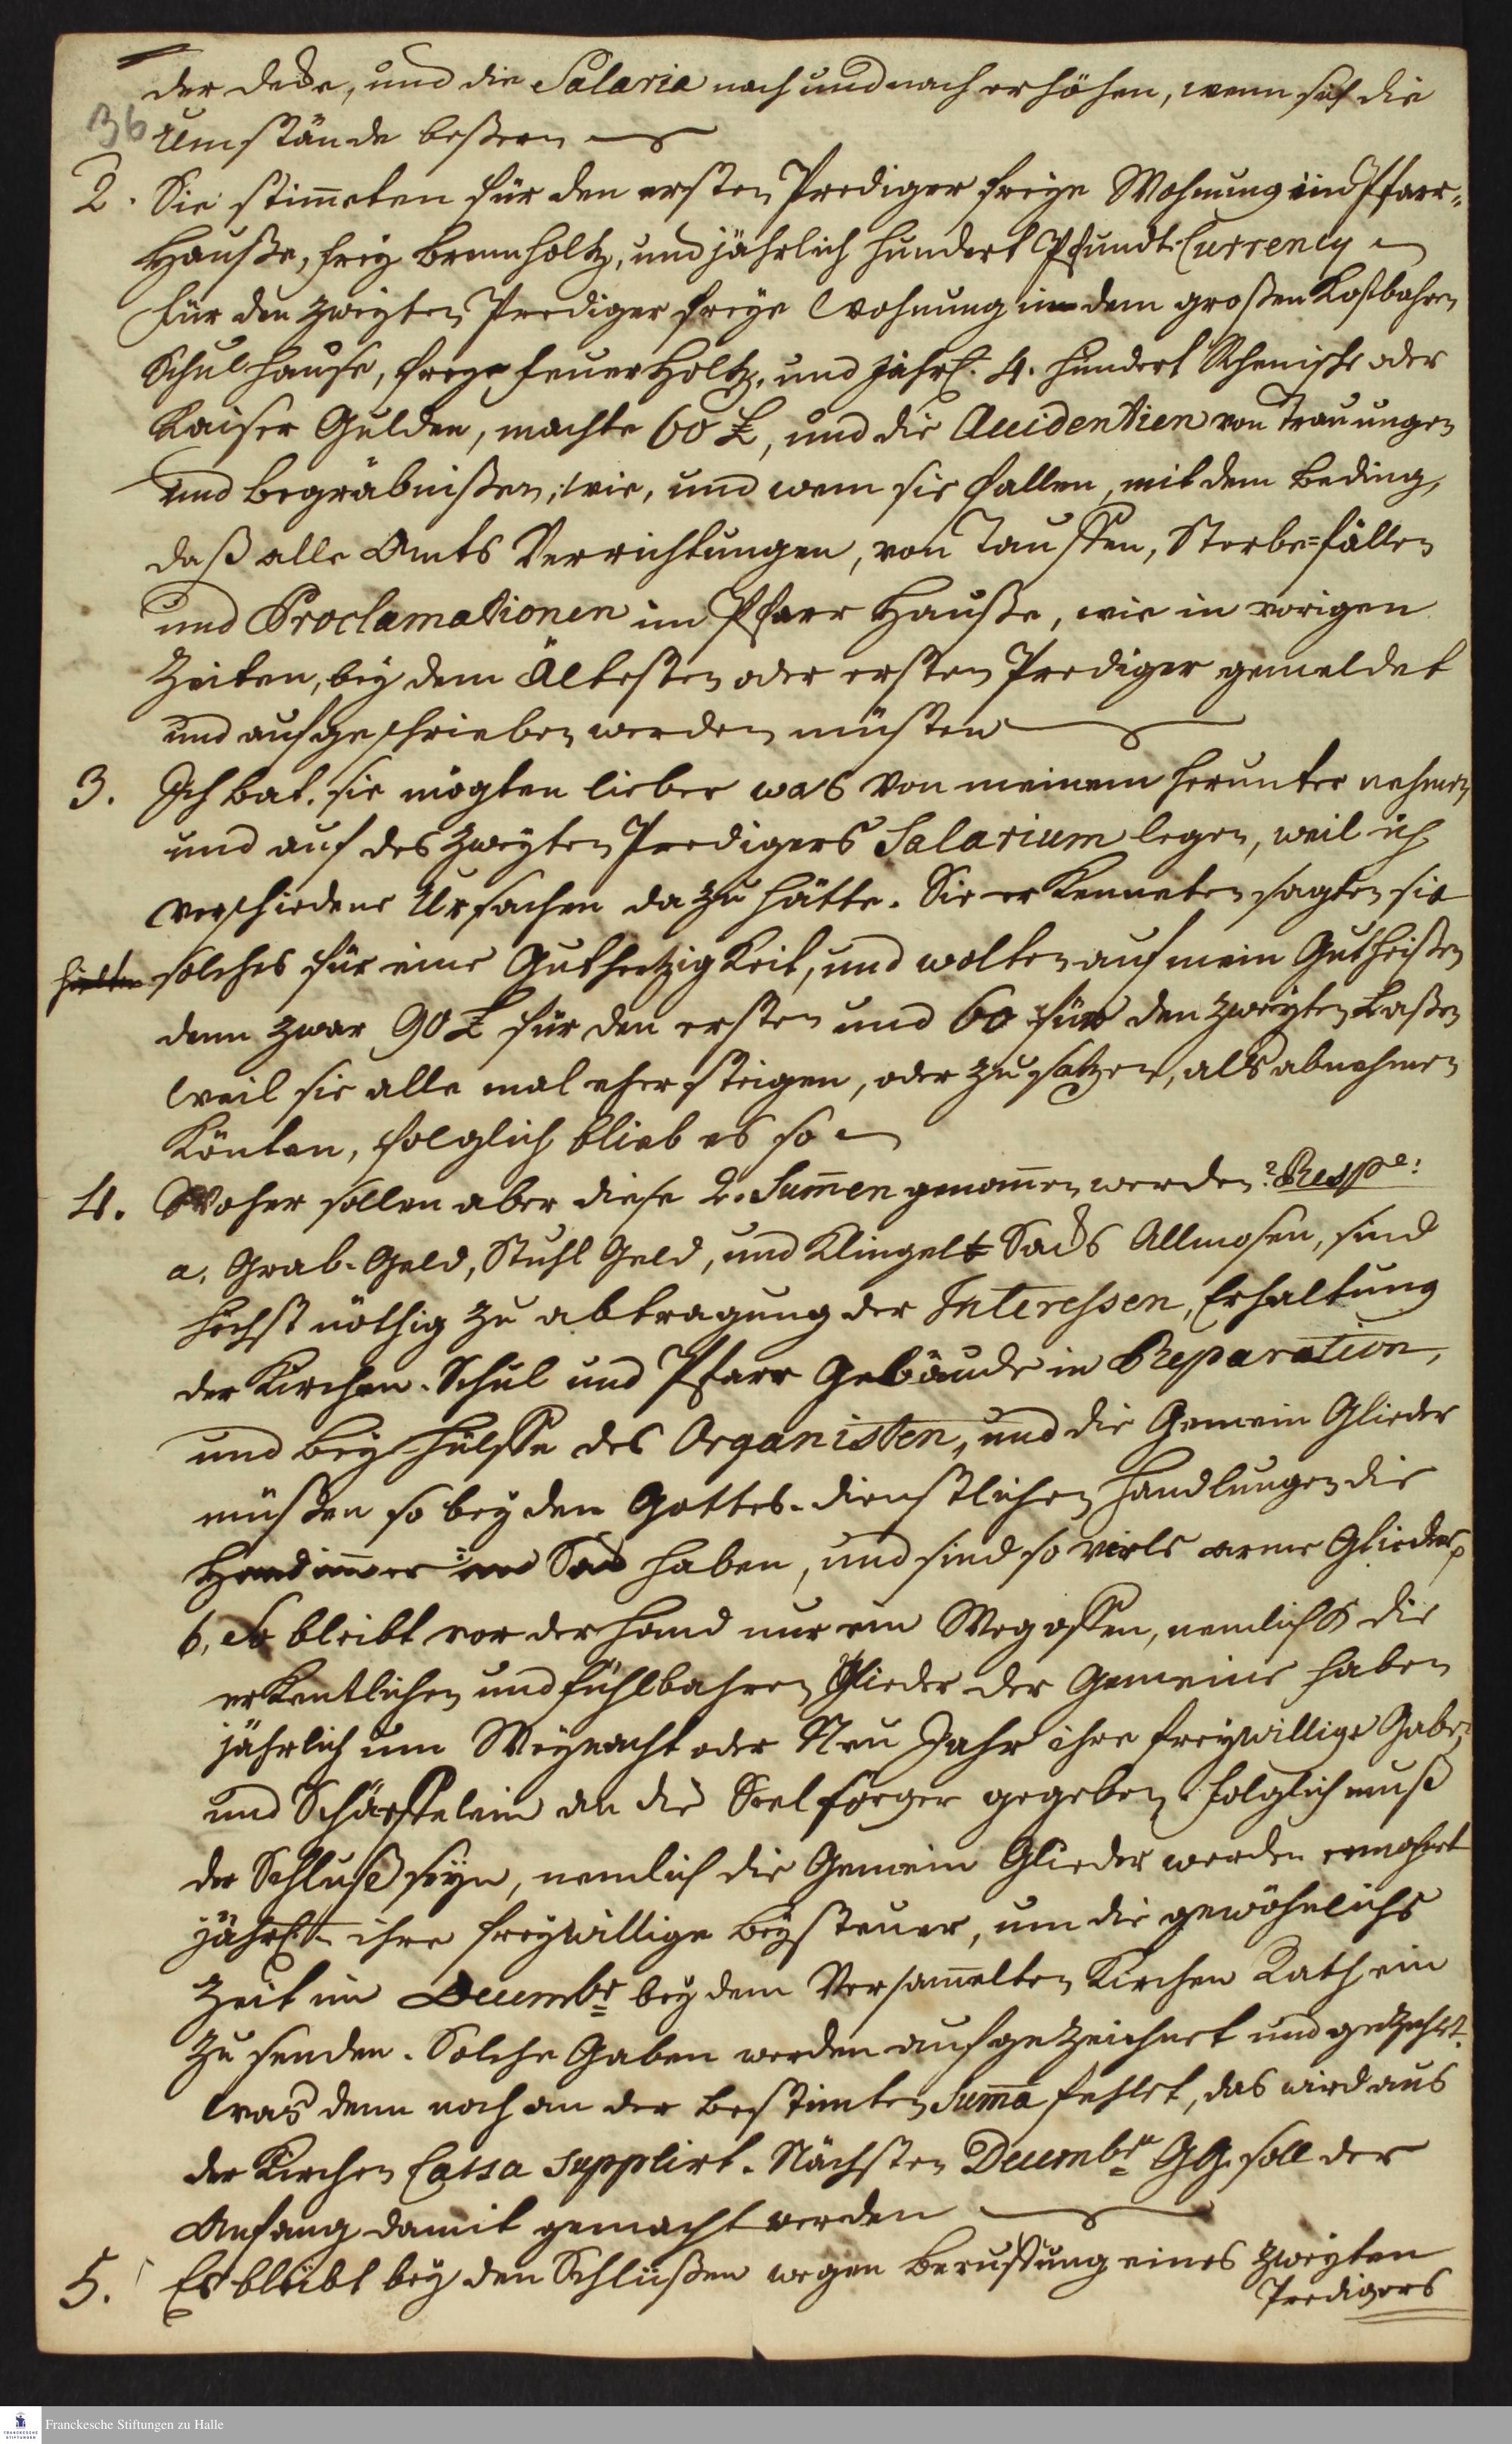 der Decke, und die Salaria nach und nach erhöhen, wenn sich die
36 Umstände beßern
2. Sie stim̄eten für den ersten Prediger freye Wohnung im Pfarr-
Hauße, frey brennholtz, und jährlich hundert Pfundt Currency
für den zweyten Prediger freye Wohnung in dem großen Kostbahren
Schulhause, freye feuer Holtz, und jährl. 4. hundert Rhenische oder
Kaiser Gulden, machte 60 £, und die Accidentien von Trauungen
und begräbnißen, wie, und wenn sie fallen, mit dem Beding,
daß alle Amts Verrichtungen, von Tauffen, Sterbe-fällen
und Proclamationen im Pfarr Hauße, wie in vorigen
Zeiten, bey dem Ältesten oder ersten Prediger gemeldet
und aufgeschrieben werden müsten
3. Ich bat, sie mögten lieber was von meinem herunter nehmen
und auf des zweyten Predigers Salarium legen, weil ich
verschiedene Ursachen dazu hätte. Sie erkenneten sagten sie
hielten solches für eine Guthertzigkeit, und wolten auf mein Gutheißen
denn zwar 90 £ für den ersten und 60 für den zweyten Laßen
weil sie alle mal eher steigen, oder zusetzen, als abnehmen
Könten, folglich blieb es so
4. Woher sollen aber diese 2. Sum̄en genom̄en werden? Resp:
a, Grab-Geld, Stuhl Geld, und Klingel Sacks Allmosen, sind
höchst nöthig zu abtragung der Interessen, Erhaltung
der Kirchen-Schul und Pfarr Gebäude in Reparation,
und bey hülffe des Organisten, und die Gemein Glieder
müßen so bey den Gottes-dienstlichen Handlungen die
Hand im̄er im Sack haben, und sind so viele arme Glieder
b, Es bleibt vor der Hand nur ein Weg offen, nemlich die
erkentlichen und fühlbahren Glieder der Gemeine haben
jährlich um Weynacht oder Neu Jahr ihre freywillige Gabe,
und Schärfflein an die Seelsorger gegeben, folglich muß
der Schluß seyn, nemlich die Gemein Glieder werden ermahnt
jährl. ihre freywillige Beysteuer, um die gewöhnliche
Zeit im Decembr bey dem Versam̄elten Kirchen Rath ein
zu senden. Solche Gaben werden aufgezeichnet und gezehlt.
Was denn noch an der bestimten Sum̄a fehlet, das wird aus
der Kirchen Cassa supplirt. Nächsten Decembr GG. soll der
Anfang damit gemacht werden
5. Es bleibt bey den Schlüßen wegen Beruffung eines zweyten
Predigers
Franckesche Stiftungen zu Halle